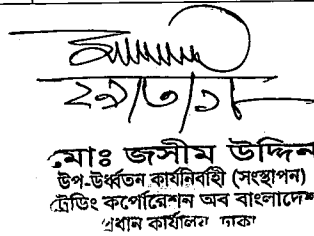 ২৯/৩/১৮
মোঃ জসীম উদ্দিন
উপ-উর্ধ্বতন কার্যনির্বাহী (সংস্থাপন)
ট্রেডিং কর্পোরেশন অব বাংলাদেশ
প্রধান কার্যালয় ঢাকা